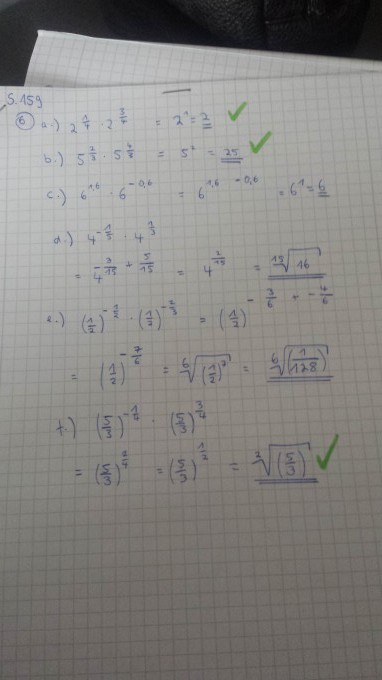 S. 159
⑥ a.) 2^(1/4) · 2^(3/4) = 2^1 = 2
b.) 5^(2/3) · 5^(4/3) = 5^2 = 25
c.) 6^(1,6) · 6^(-0,6) = 6^(1,6 - 0,6) = 6^1 = 6
d.) 4^(-1/5) · 4^(1/3)
= 4^(-3/15 + 5/15) = 4^(2/15) = ¹⁵√16
e.) (1/2)^(-1/2) · (1/2)^(-2/3) = (1/2)^(-3/6 + -4/6)
= (1/2)^(-7/6) = ⁶√(1/2)^7 = ⁶√(1/128)
f.) (5/3)^(-1/4) · (5/3)^(3/4)
= (5/3)^(2/4) = (5/3)^(1/2) = ²√(5/3)